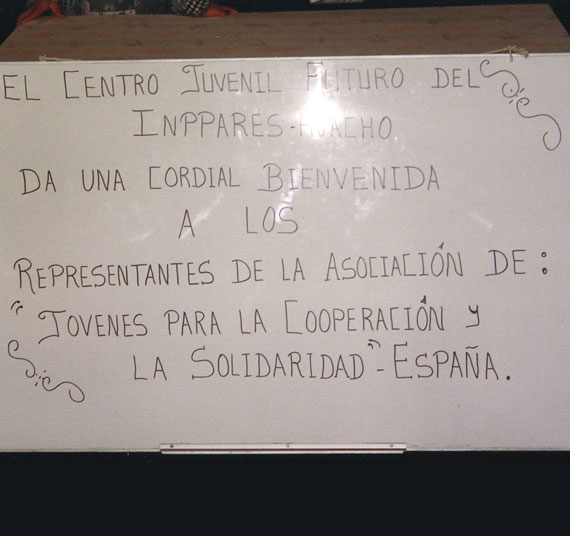 EL CENTRO JUVENIL FUTURO DEL
INPPARES-HUACHO
DA UNA CORDIAL BIENVENIDA
A LOS
REPRESENTANTES DE LA ASOCIACIÓN DE:
"JOVENES PARA LA COOPERACIÓN Y
LA SOLIDARIDAD"-ESPAÑA.